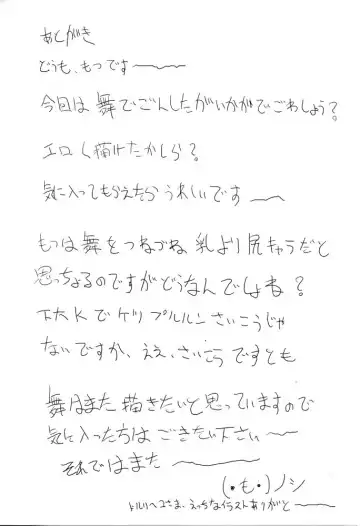 あとがき
どうも、もつです〜
今回は舞でごんしたがいかがでごわしょう？
エロく描けたかしら？
気に入ってもらえたらうれしいです〜
もつは舞をつねづね乳より尻キャラだと
思っちょるのですがどうなんでしょね？
下大Kでケツプルルンさいこうじゃ
ないですか、ええ、さいこうですとも
舞はまた描きたいと思っていますので
気に入った方はごきたい下さい〜
それではまた〜
(・も・)ノシ
さま、えっちなイラストありがと〜